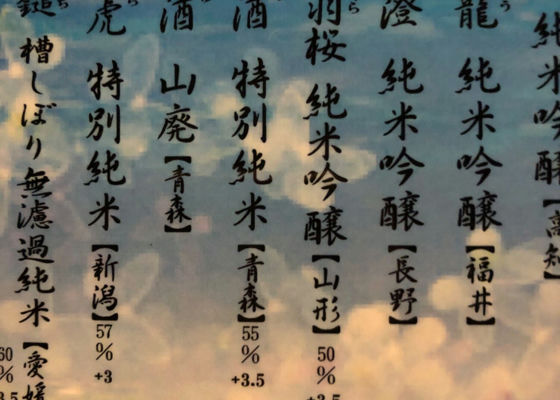 純米吟醸【高知】
龍 純米吟醸【福井】
澄 純米吟醸【長野】
羽桜 純米吟醸【山形】50% +3.5
酒 特別純米【青森】55% +3.5
酒 山廃【青森】
虎 特別純米【新潟】57% +3
槽しぼり無濾過純米【愛媛
60%